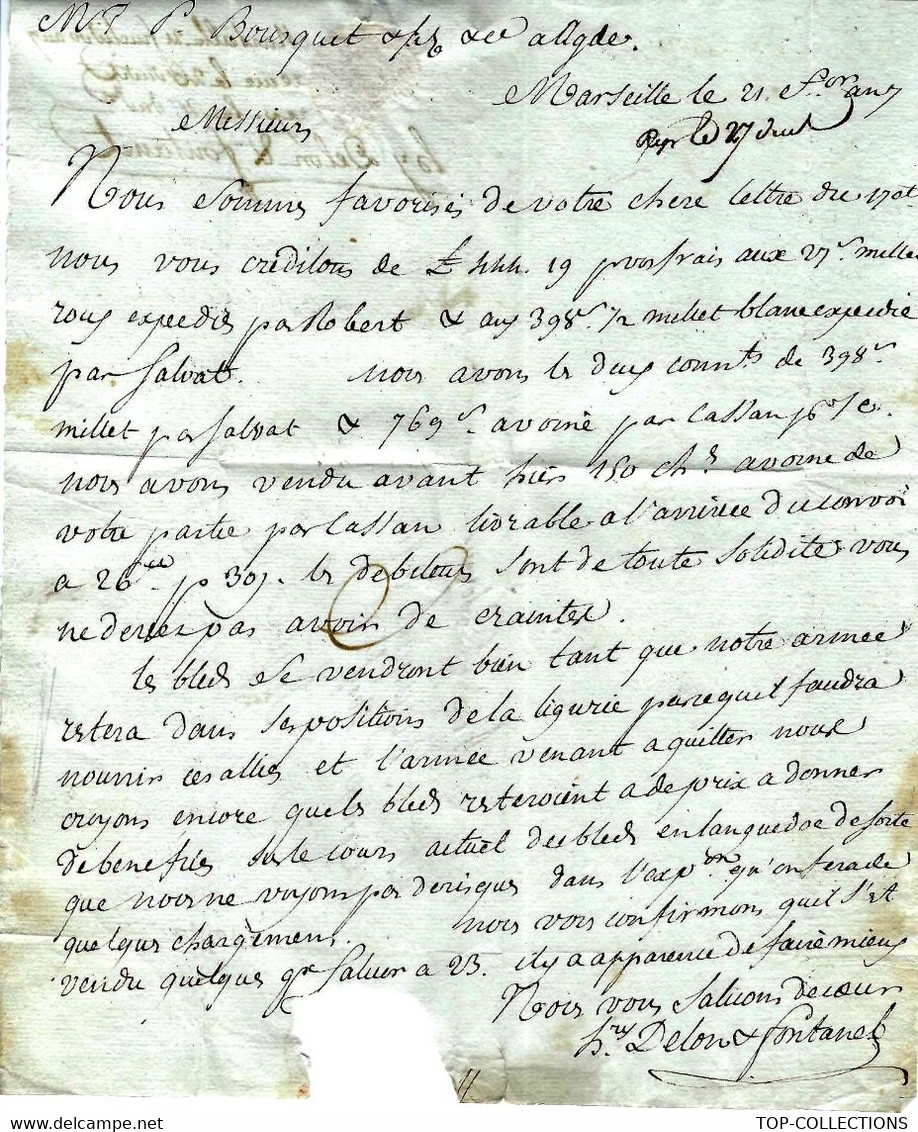 Mrs P Bousquet & & Ce a Agde.
Marseille le 21. an 7
Rep le 27 dud
Messieurs
Nous sommes favorisés de votre chere lettre du 17 ct
nous vous creditons de £ 444. 19 pour frais aux 27 s. millet
roux expediés par Robert & aux 398 s. 1/2 millet blanc expedié
par Salvat. nous avons les deux connts de 398 s.
millet par Salvat & 769 s. avoine par Cassan
nous avons vendu avant hier 150 chs avoine de
votre partie par Cassan livrable a l'arrivée du convoi
a 26 p 30j. les debiteurs sont de toute solidité vous
ne devez pas avoir de craintes.
les bleds se vendront bien tant que notre armée
restera dans ses positions de la ligurie parcequil faudra
nourrir ces alliés et l'armée venant a quitter nous
croyons encore que les bleds resteroient a de prix a donner
de benefices sur le cours actuel des bleds en languedoc de sorte
que nous ne voyons pas de risques dans l'expon qu'on fera de
quelques chargemens. nous vous confirmons quil s'est
vendu quelques a 23. il y a apparence de faire mieux
Nous vous saluons de cœur
hry Delon & fontanel
TOP-COLLECTIONS